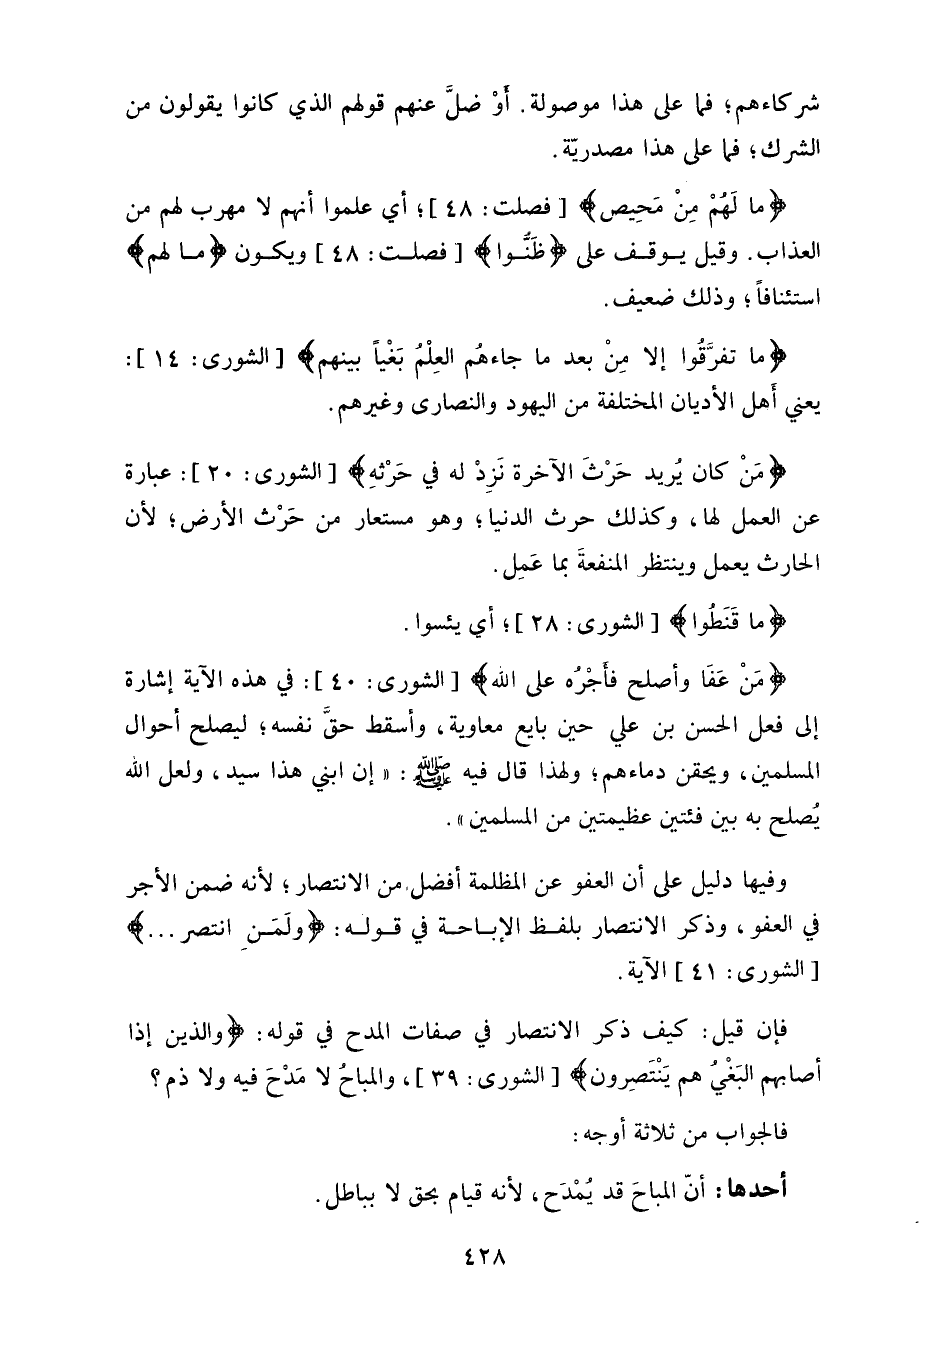 شركاءهم؛ فما على هذا موصولة. أَوْ ضلَّ عنهم قولهم الذي كانوا يقولون من
الشرك؛ فما على هذا مصدريّة.
﴿ما لَهُمْ مِنْ مَحِيص﴾ [فصلت: ٤٨]؛ أي علموا أنهم لا مهرب لهم من
العذاب. وقيل يوقف على ﴿ظَنُّوا﴾ [فصلت: ٤٨] ويكون ﴿ما لهم﴾
استئنافاً؛ وذلك ضعيف.
﴿ما تفرَّقُوا إلا مِنْ بعد ما جاءهُم العِلْمُ بَغْياً بينهم﴾ [الشورى: ١٤]:
يعني أهل الأديان المختلفة من اليهود والنصارى وغيرهم.
﴿مَنْ كان يُريد حَرْثَ الآخرة نَزِدْ له في حَرْثهِ﴾ [الشورى: ٢٠]: عبارة
عن العمل لها، وكذلك حرث الدنيا؛ وهو مستعار من حَرْث الأرض؛ لأن
الحارث يعمل وينتظر المنفعةَ بما عَمِل.
﴿ما قَنَطُوا﴾ [الشورى: ٢٨]؛ أي يئسوا.
﴿مَنْ عَفَا وأصلح فأَجْرُه على الله﴾ [الشورى: ٤٠]: في هذه الآية إشارة
إلى فعل الحسن بن علي حين بايع معاوية، وأسقط حقَّ نفسه؛ ليصلح أحوال
المسلمين، ويحقن دماءهم؛ ولهذا قال فيه ﷺ: «إن ابني هذا سيد، ولعل الله
يُصلح به بين فئتين عظيمتين من المسلمين».
وفيها دليل على أن العفو عن المظلمة أفضل من الانتصار؛ لأنه ضمن الأجر
في العفو، وذكر الانتصار بلفظ الإباحة في قوله: ﴿ولَمَنِ انتصر...﴾
[الشورى: ٤١] الآية.
فإن قيل: كيف ذكر الانتصار في صفات المدح في قوله: ﴿والذين إذا
أصابهم البَغْيُ هم يَنْتَصِرون﴾ [الشورى: ٣٩]، والمباحُ لا مَدْحَ فيه ولا ذم؟
فالجواب من ثلاثة أوجه:
أحدها: أنّ المباحَ قد يُمْدَح، لأنه قيام بحق لا بباطل.
٤٢٨